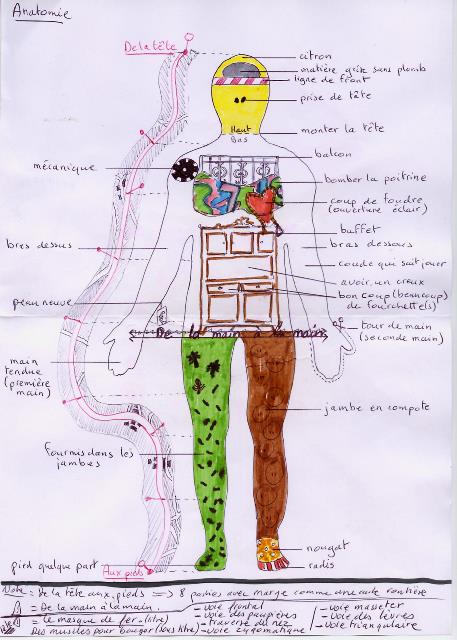 Anatomie
De la tête
citron
matière grise sans plomb
ligne de front
prise de tête
Haut
Bas
monter la tête
balcon
mécanique
bomber la poitrine
coup de foudre
(ouverture éclair)
buffet
bras dessus
bras dessous
coude qui sait jouer
avoir un creux
peau neuve
bon coup (beaucoup)
de fourchette(s)
De la main à la main
tour de main
(seconde main)
main
tendue
(première
main)
jambe en compote
fourmis dans les
jambes
nougat
pied quelque part
Aux pieds
radis
Note: De la tête aux pieds => 8 parties avec marge comme une carte routière
De la main à la main
Le masque de fer (titre)
Des muscles pour bouger (sous titre)
- voie frontal
- voie des paupières
- traverse du nez
- voie zygomatique
- voie masseter
- voie des lèvres
- voie triangulaire